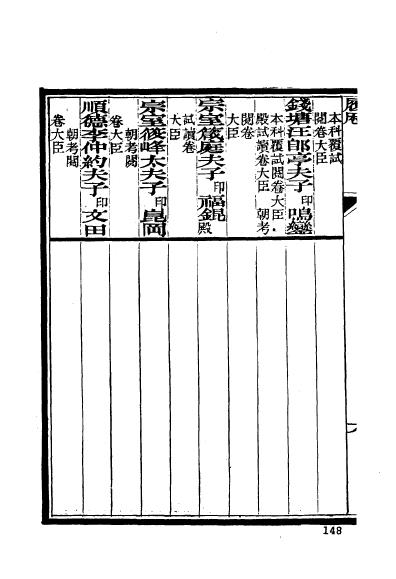 本科覆試
閱卷大臣
錢塘汪郋亭夫子印鳴鑾
本科覆試閱卷大臣．
殿試讀卷大臣　朝考
閱卷
大臣
宗室箴庭夫子印福錕殿
試讀卷
大臣
宗室筱峰太夫子印崑岡
朝考閱
卷大臣
順德李仲約夫子印文田
朝考閱
卷大臣
148